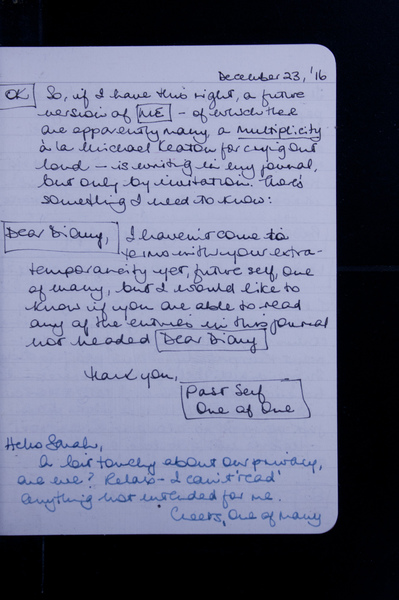 December 23, '16
OK So, if I have this right, a future
version of ME - of which there
are apparently many, a multiplicity
à la Michael Keaton for crying out
loud - is writing in my journal,
but only by invitation. There's
something I need to know:
Dear Diary, I haven't come to
terms with your extra-
temporaneity yet, future self, one
of many, but I would like to
know if you are able to read
any of the entries in this journal
not headed Dear Diary
Thank you,
Past Self
One of One
Hello Sarah,
A bit touchy about our privacy,
are we? Relax - I can't 'read'
anything not intended for me.
Cheers, One of Many